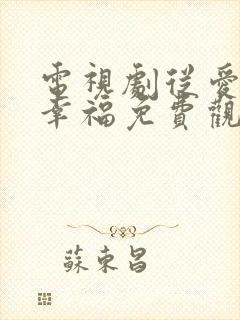 電視劇從愛
幸福免費觀
蘇東昌